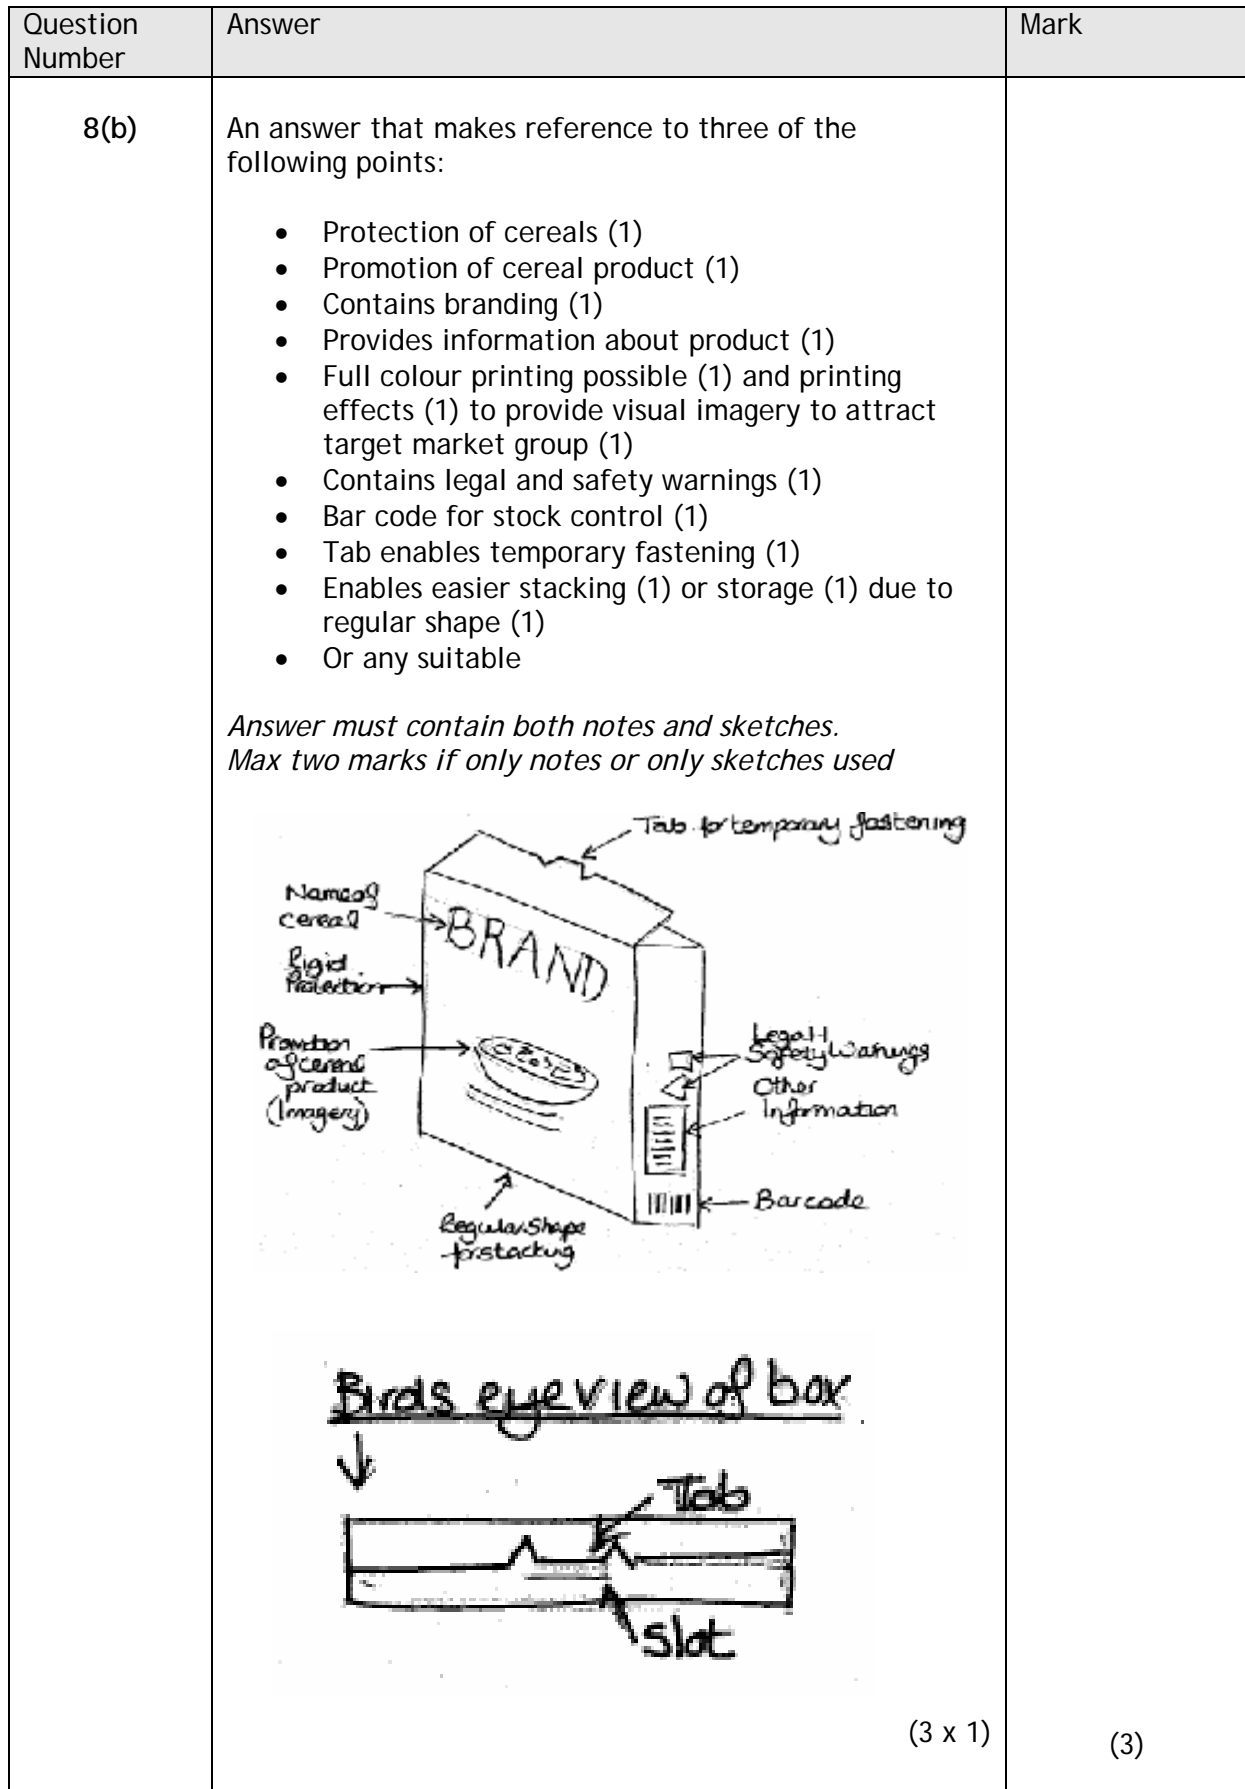 Question Number
Answer
Mark
8(b)
An answer that makes reference to three of the
following points:
• Protection of cereals (1)
• Promotion of cereal product (1)
• Contains branding (1)
• Provides information about product (1)
• Full colour printing possible (1) and printing
effects (1) to provide visual imagery to attract
target market group (1)
• Contains legal and safety warnings (1)
• Bar code for stock control (1)
• Tab enables temporary fastening (1)
• Enables easier stacking (1) or storage (1) due to
regular shape (1)
• Or any suitable
Answer must contain both notes and sketches.
Max two marks if only notes or only sketches used
Tab for temporary fastening
Name of
cereal
BRAND
Rigid
Protection
Promotion
of cereal
product
(Imagery)
Legal +
Safety Warnings
Other
Information
Barcode
Regular Shape
for stacking
Birds eye view of box
Tab
Slot
(3 x 1)
(3)